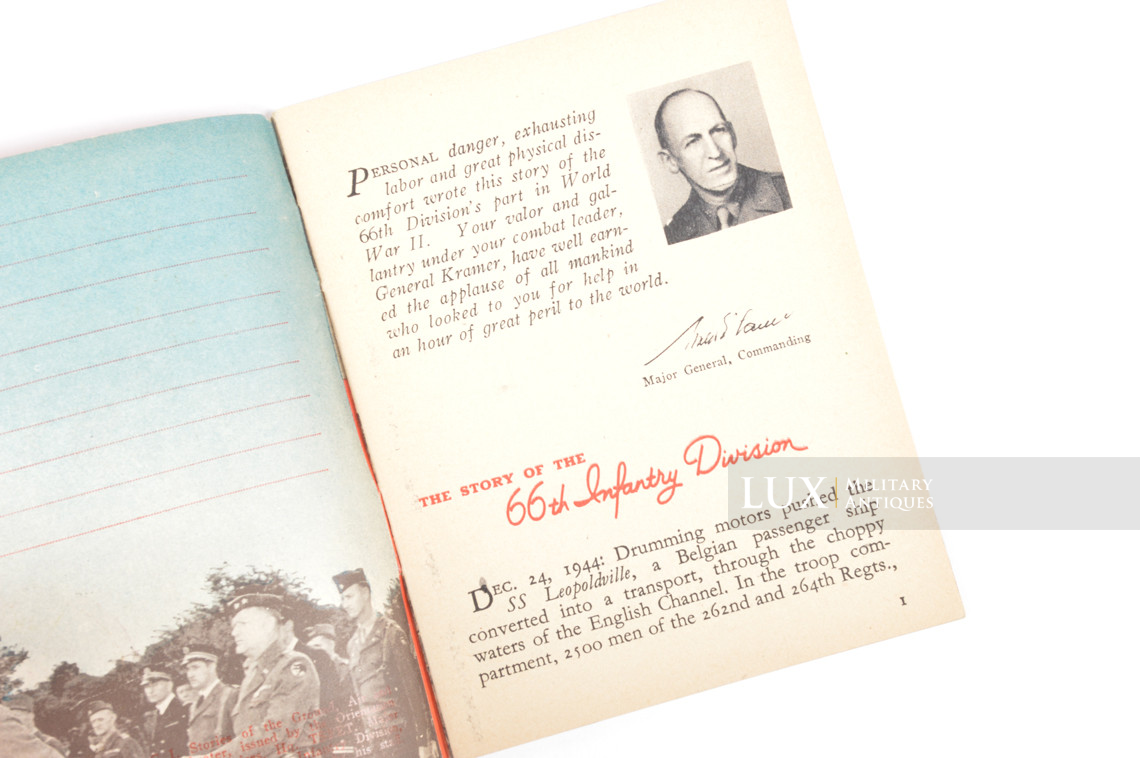 PERSONAL danger, exhausting
labor and great physical dis-
comfort wrote this story of the
66th Division's part in World
War II. Your valor and gal-
lantry under your combat leader,
General Kramer, have well earn-
ed the applause of all mankind
who looked to you for help in
an hour of great peril to the world.
Major General, Commanding
THE STORY OF THE
66th Infantry Division
DEC. 24, 1944: Drumming motors pushed the
SS Leopoldville, a Belgian passenger ship
converted into a transport, through the choppy
waters of the English Channel. In the troop com-
partment, 2500 men of the 262nd and 264th Regts.,
1
LUX MILITARY
ANTIQUES
Stories of the
issued by
Division
his